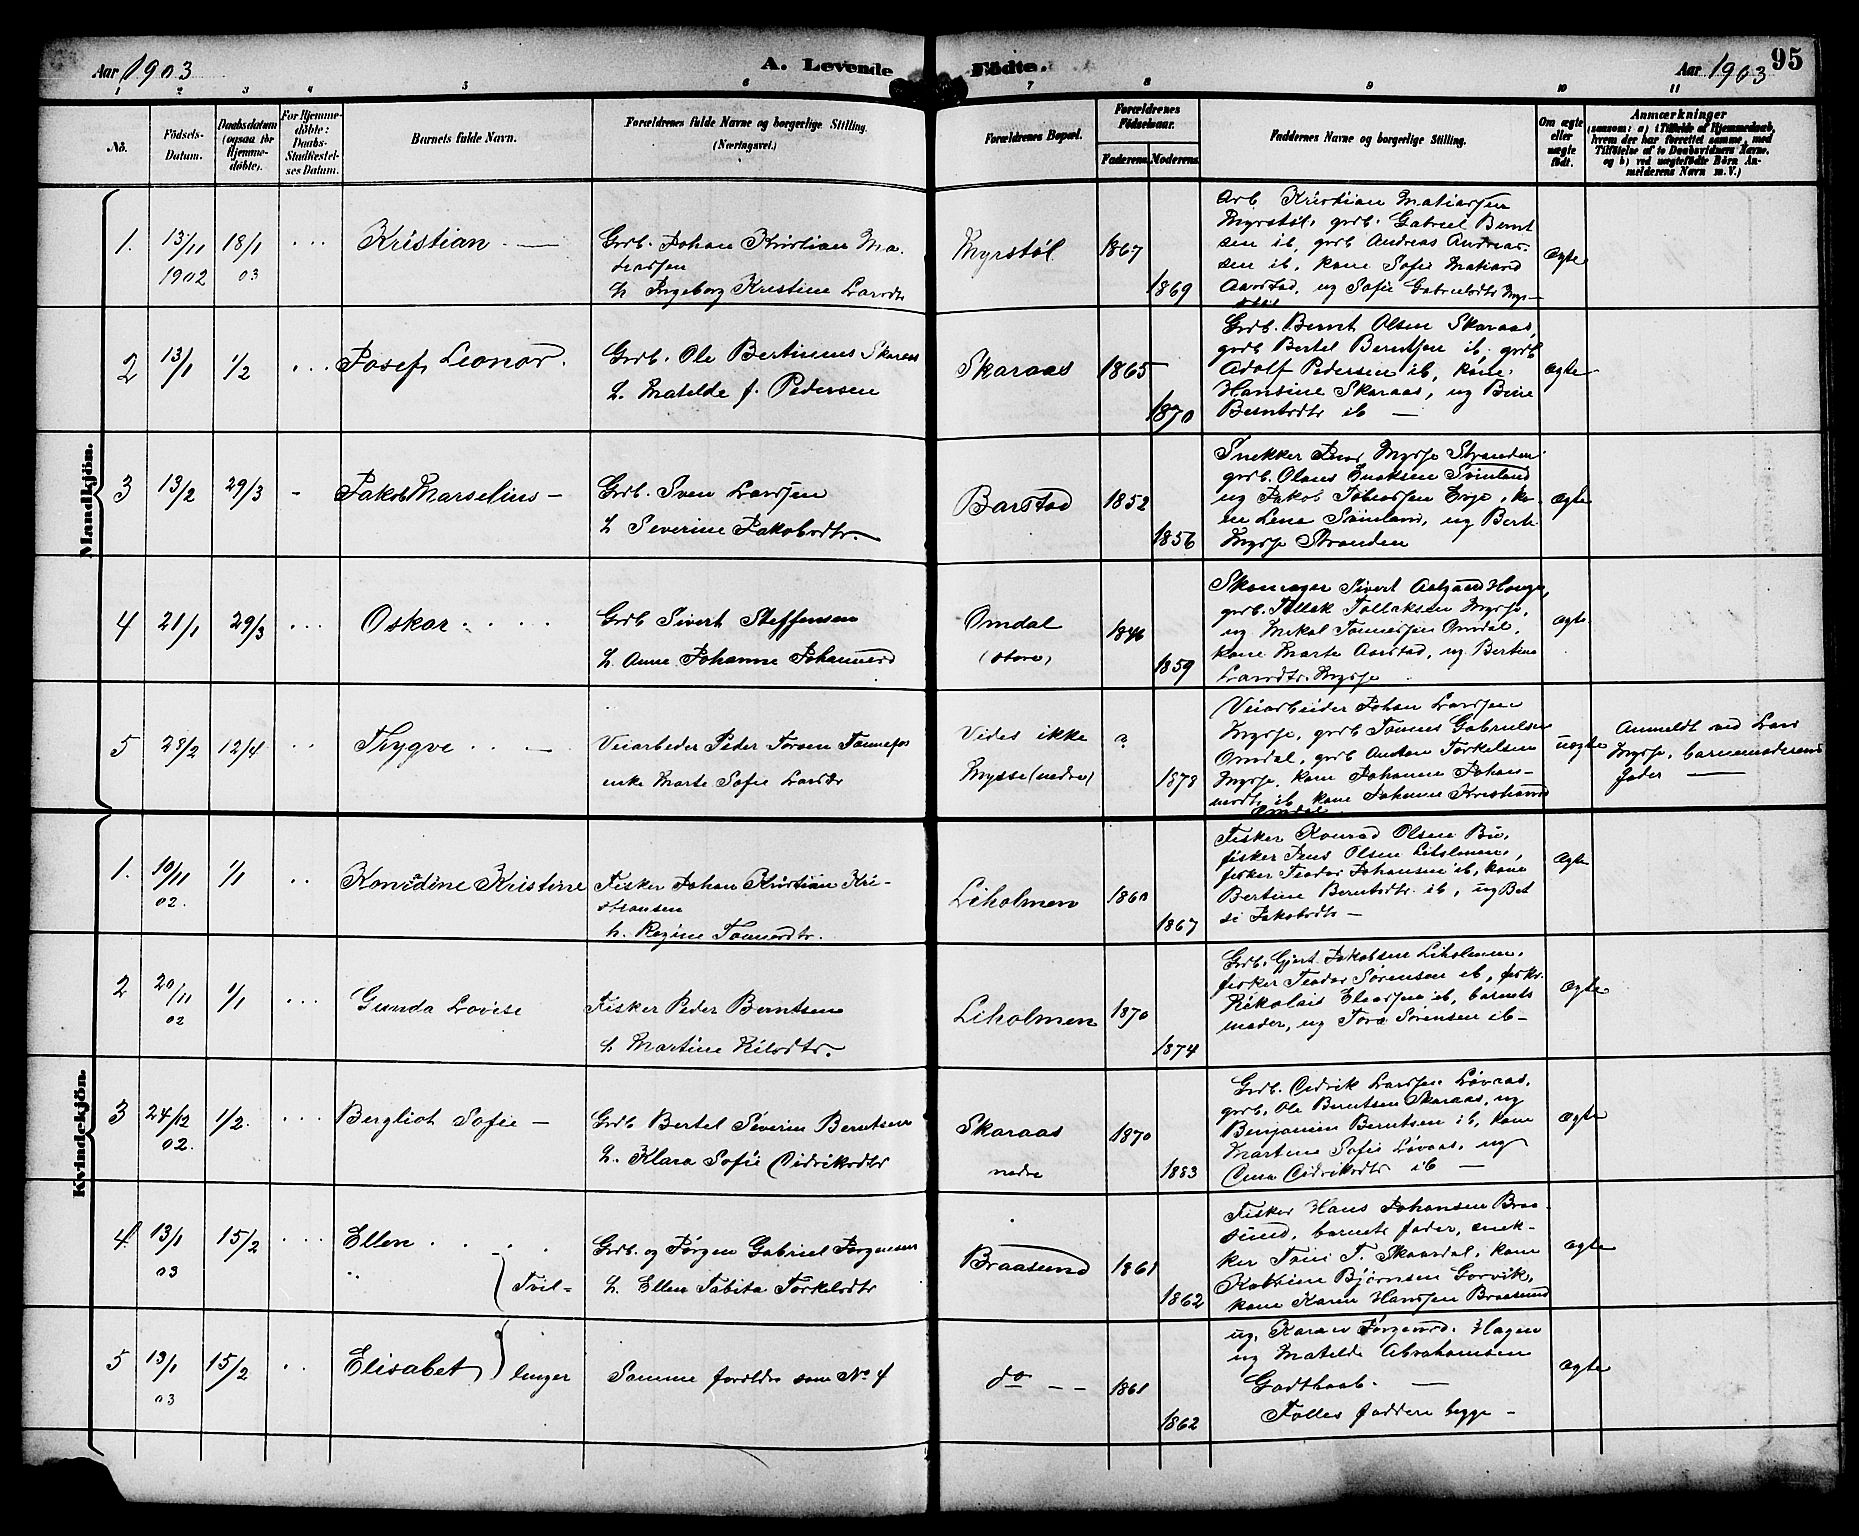 Aar 1903
A. Levende Födte.
Aar 1903
95
1 2 3 4 5 6 7 8 9 10 11
No.
Födsels-
Datum.
Daabsdatum
(ogsaa for
Hjemme-
döbte).
For Hjemme-
döbte:
Daabs-
Stadfæstel-
ses Datum.
Barnets fulde Navn.
Forældrenes fulde Navne og borgerlige Stilling.
(Næringsvei.)
Forældrenes Bopæl.
Forældrenes
Födselsaar.
Faderens
Moderens
Faddernes Navne og borgerlige Stilling.
Om ægte
eller
uægte
födt.
Anmærkninger
Mandkjön.
1. 13/11 1902
18/1 03
Kristian
Grdb. Johan Kristian Ma-
tiassen
h. Ingeborg Kristine Larsdtr
Myrstøl
1867
1869
Arb Kristian Matiassen
Myrstøl, grdb. Gabriel Bernt
sen ib, grdb Andreas Andreas-
sen ib, kone Sofie
Aarstad, ug Sofie Gabrielsdtr Myr-
støl
ægte
2 13/1 1/2
Josef Leonor.
Grdb. Ole Bertinius Skaraas
h. Matilde f. Pedersen
Skaraas
1865
1870
Grdb. Bernt Olsen Skaraas,
grdb Bertel Berntsen ib, grdb
Adolf Pedersen ib, kone
Hansine Skaraas, ug
Berntsdtr ib
ægte
3 13/2 29/3
Jakob Marselius
Grdb. Sven Larsen
h Severine Jakobsdtr.
Barstad
1852
1856
Snekker Jens Mysse Stranden
grdb. Olaus
ug Jakob Tobiassen Eeje, ko-
ne Lena ug Berte
Mysse Stranden
ægte
4 21/1 29/3
Oskar
Grdb Sivert Steffensen
h. Anne Johanne
Omdal
(store)
1846
1859
Skomager Sivert Hauge,
grdb. Tollak Tollaksen Mysse,
ug Mikal Tønnessen Omdal,
kone Marte Aarstad, ug Bertine
Larsdtr. Mysse
ægte
5 28/2 12/4
Thygve
Veiarbeder Peder
enke Marte Sofie Larsdtr
Vides ikke
Mysse (nedre)
?
1878
Veiarbeider Johan Larssen
Mysse, grdb Tønnes Gabrielsen
Omdal, grdb Anton Torkelsen
Mysse, kone Johanne Johan-
nesdtr ib, kone Johanne
Omdal
uægte
Anmeldt ved Lars
Mysse, barnemoderens
fader
Kvindekjön.
1. 10/11 02.
1/1
Konradine Kristine
Fisker Johan Kristian Kri-
stiansen
h. Regine
Liholmen
1860
1867
Fisker Konrad Olsen Bø,
fisker Jens Olsen Liholmen,
fisker Teodor Johansen ib, kone
Bertine Berntsdtr. ib, ug Bet
si Jakobsdtr
Ægte
2 20/11 02
1/1
Gunda Lovise
Fisker Peder Berntsen
h Martine Nilsdtr.
Liholmen
1870
1874
Grdb. Gjert Jakobsen Liholmen,
fisker Teodor Sørensen ib, fisker
Nikolais Eliassen ib, barnets
moder, ug Tora Sørensen ib
ægte
3 24/12 02.
1/2.
Bergliot Sofie
Grdb Bertel Severin Berntsen
h. Klara Sofie Cidriksdtr
Skaraas
nedre
1870
1883
Grdb. Cidrik Larssen Løvaas,
grdb. Ole Berntsen Skaraas, ug
Benjamin Berntsen ib, kone
Martine Sofie Løvaas, ug
Cidriksdtr ib
ægte
4 13/1 03
15/2
Ellen
Tvil-
Grdb. og Jørgen Gabriel Jørgensen
h. Ellen Tabita Torkelsdtr
Braasund
1861
1862
Fisker Hans Johansen Braa-
sund, barnets fader, snek-
ker Tøni T. Skaardal, kone
Katrine Bjørnsen Gorvik,
kone Karen Hanssen Braasund
ægte
5 13/1 03
15/2
Elisabet
linger
Samme foreldre som No 4
do
1861
1862
ug. Karen Jørgensd. Hagen
ug Matilde Abrahamsen
Godthaab.
Følles faddere begge
ægte